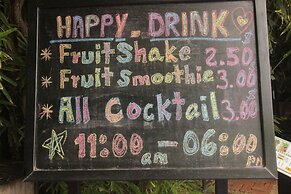 HAPPY DRINK
Fruit Shake 2.50
Fruit Smoothie 3.00
All Cocktail 3.00
11:00 am - 06:00 PM